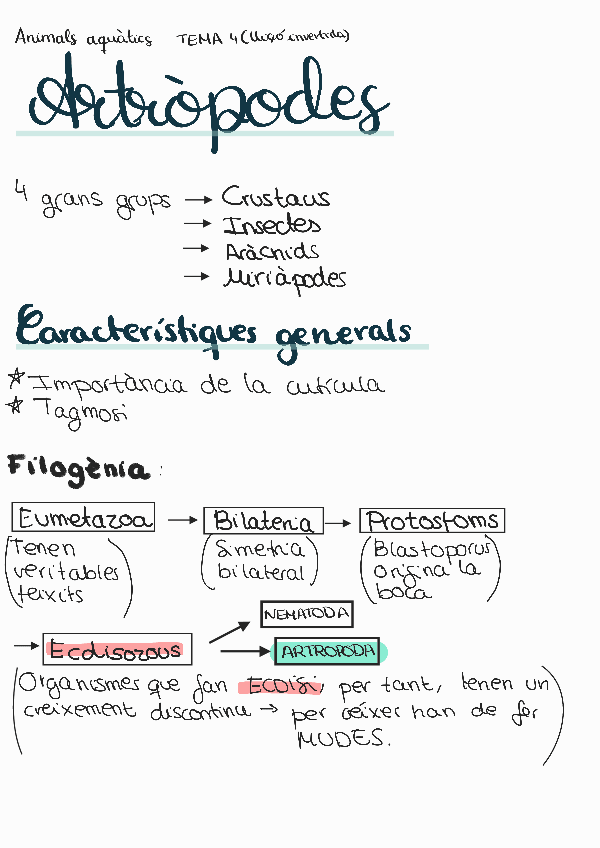 Animals aquàtics TEMA 4 (lliçó invertida)
Artròpodes
4 grans grups → Crustacis
→ Insectes
→ Aràcnids
→ Miriàpodes
Característiques generals
☆ Importància de la cutícula
☆ Tagmosi
Filogènia:
Eumetazoa → Bilateria → Protostoms
(Tenen veritables teixits) (Simetria bilateral) (Blastoporus origina la boca)
→ Ecdisozous → NEMATODA
→ ARTROPODA
(Organismes que fan ECDISI, per tant, tenen un
creixement discontinu → per créixer han de fer
MUDES.)